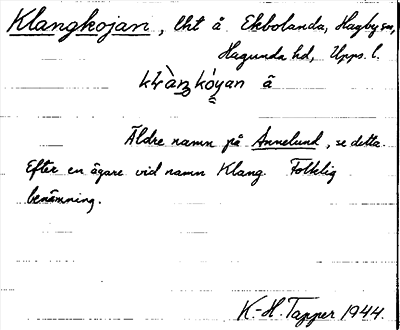 Klangkojan, lht å Ekbolanda, Hagby sn,
Hagunda hd, Upps. l.
å
Äldre namn på Annelund, se detta.
Efter en ägare vid namn Klang. Folklig
benämning.
K.-H. Tapper 1944.